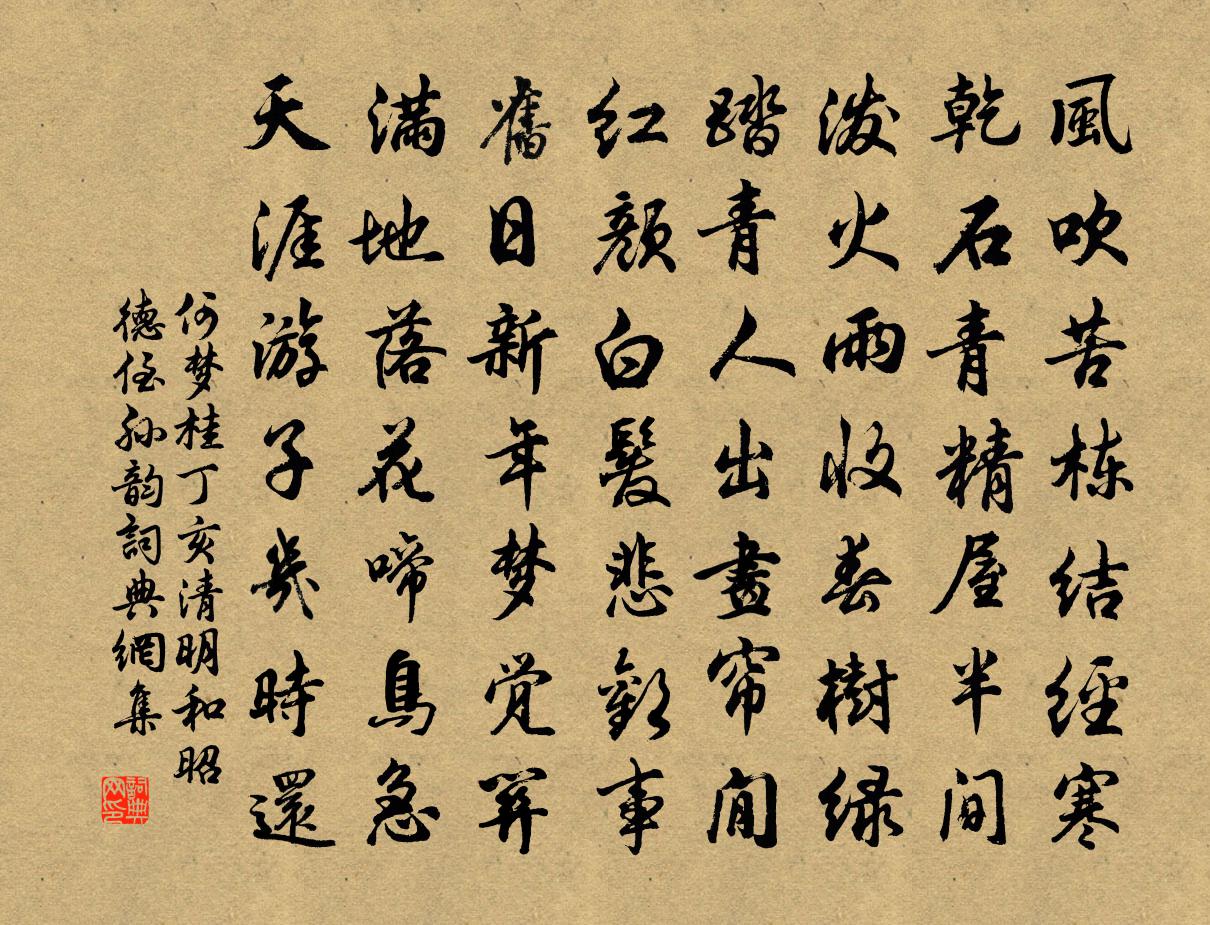 風吹苦楝結經寒
乾石青精屋半间
潑火雨收春樹緑
踏青人出晝帘閒
红顏白髮悲歡事
舊日新年梦觉關
滿地落花啼鳥急
天涯游子幾時還
何梦桂丁亥清明和昭
德侄孙韵詞典網集
詞典网印